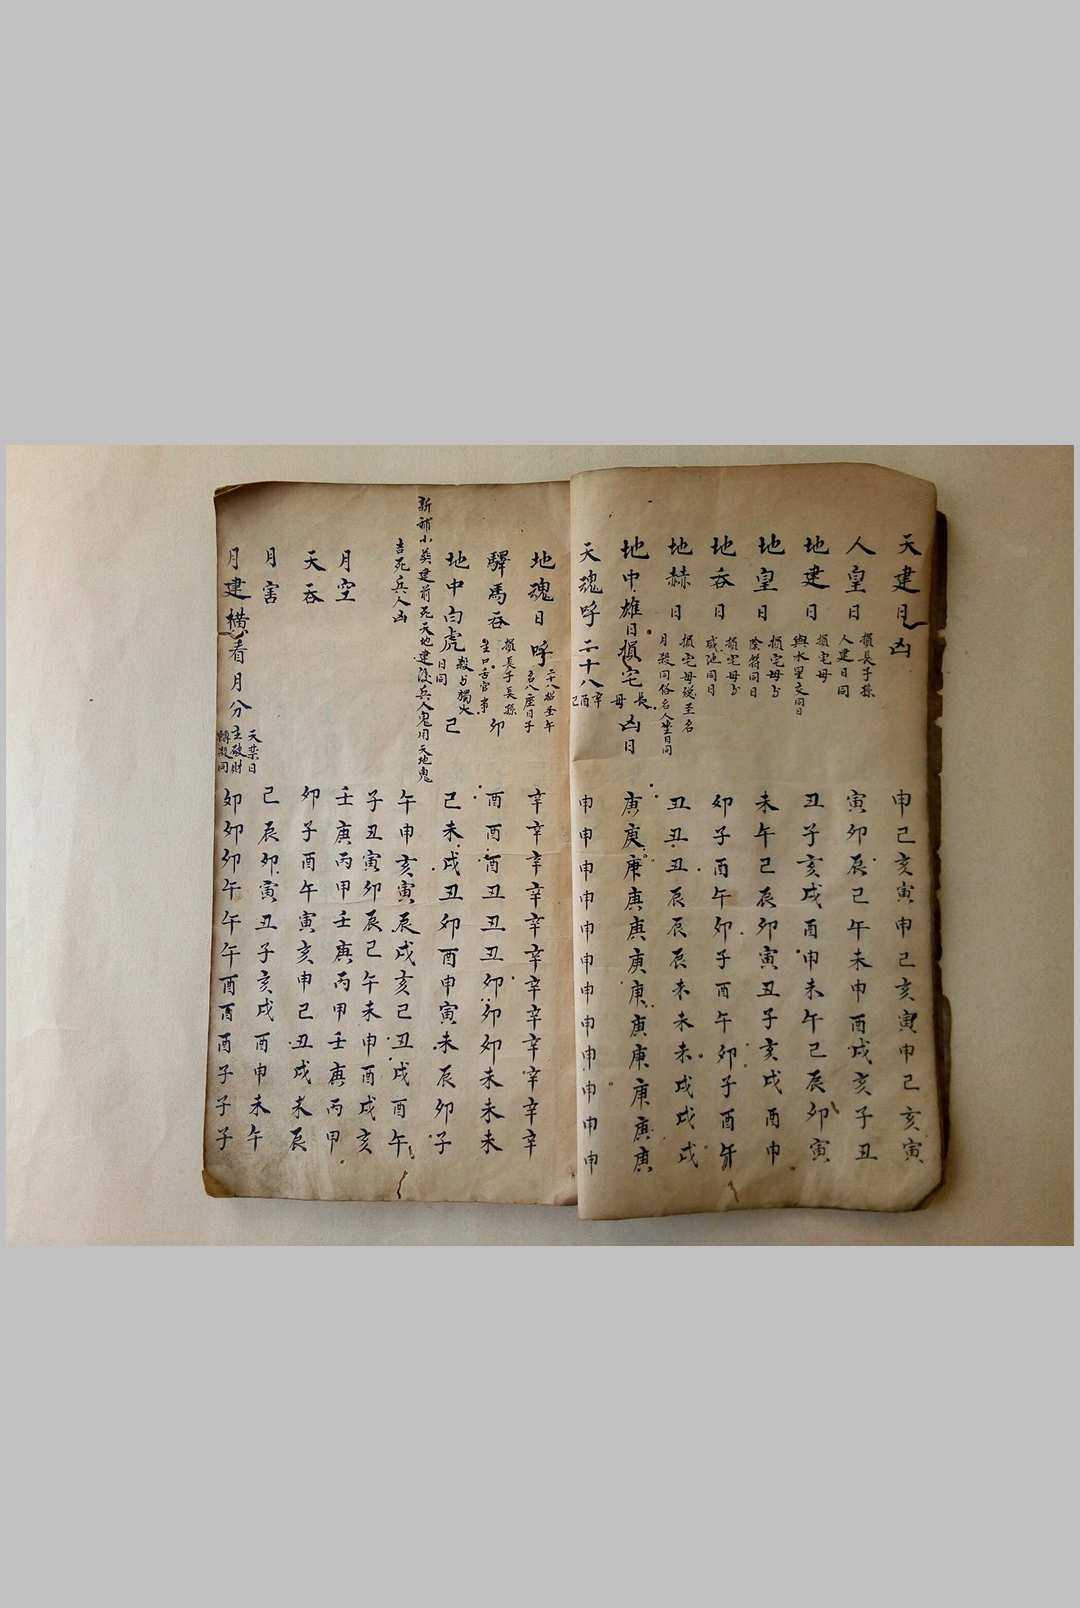 天建日凶 申己亥寅申己亥寅申己亥寅
人皇日 損長子孫 人建日同 寅卯辰己午未申酉戌亥子丑
地建日 損宅母 與水星交同日 丑子亥戌酉申未午己辰卯寅
地皇日 損宅母 陰符同日 未午己辰卯寅丑子亥戌酉申
地吞日 損宅母 咸池同日 卯子酉午卯子酉午卯子酉午
地赫日 損宅母 月殺同 丑丑丑辰辰辰未未未戌戌戌
地中雄日損宅長母凶日 庚庚庚庚庚庚庚庚庚庚庚庚
天魂呼二十八 辛酉己 申申申申申申申申申申申申
地魂日呼 辛辛辛辛辛辛辛辛辛辛辛辛
驛馬吞 損長子長孫 口舌官事 卯 酉酉酉丑丑丑卯卯卯未未未
地中白虎 日同 獨火 己 己未戌丑卯酉申寅未辰卯子
新補小葬建前死天地建後兵人鬼用天地鬼 午申亥寅辰戌亥己丑戌酉午
吉死兵人凶 子丑寅卯辰己午未申酉戌亥
月空 壬庚丙甲壬庚丙甲壬庚丙甲
天吞 卯子酉午寅亥申己丑戌未辰
月害 己辰卯寅丑子亥戌酉申未午
月建橫看月分 主破財 卯卯卯午午午酉酉酉子子子